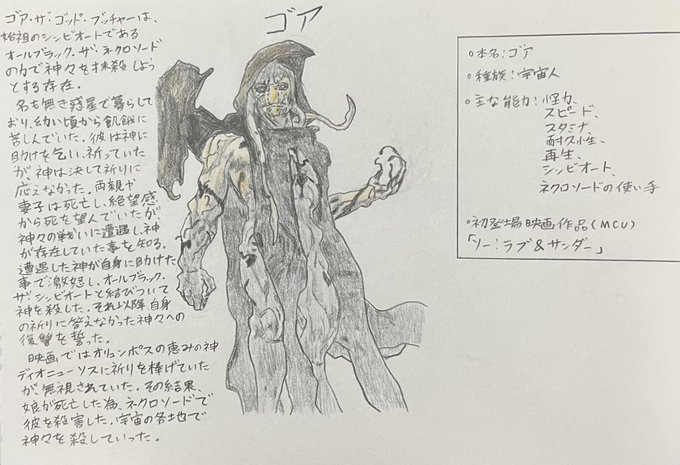 ゴア
ゴア・ザ・ゴッド・ブッチャーは、
始祖のシンビオートである
オールブラック・ザ・ネクロソード
の力で神々を抹殺しよう
とする存在。
名も無き惑星で暮らして
おり、幼い頃から飢餓に
苦しんでいた。彼は神に
助けを乞い、祈っていた
が神は決して祈りに
応えなかった。両親や
妻子は死亡し、絶望感
から死を望んでいたが
神々の戦いに遭遇し、神
が存在していた事を知る。
遭遇した神が自身に助けた
事で激怒し、オールブラック・
ザ・シンビオートと結びついて
神を殺した。それ以降自身
の祈りに答えなかった神々への
復讐を誓った。
映画ではオリュンポスの恵みの神
ディオニューソスに祈りを捧げていた
が、無視されていた。その結果、
娘が死亡した為、ネクロソードで
彼を殺害した。宇宙の各地で
神々を殺していった。
○本名:ゴア
○種族:宇宙人
○主な能力:怪力、
スピード、
スタミナ、
耐久性、
再生、
シンビオート、
ネクロソードの使い手
○初登場映画作品(MCU)
「ソー:ラブ&サンダー」